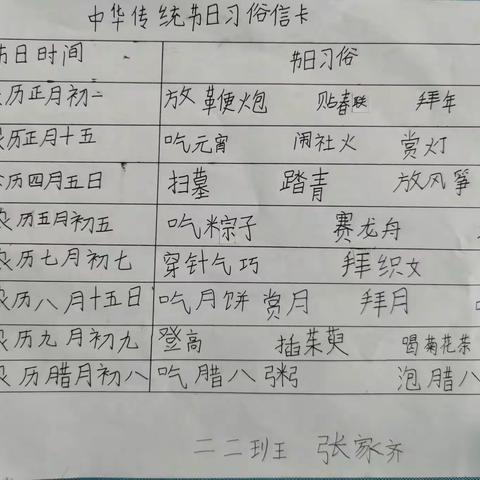 中华传统节日习俗信卡
节日时间 节日习俗
历正月初二 放鞭炮 贴春联 拜年
农历正月十五 吃元宵 闹社火 赏灯
历四月五日 扫墓 踏青 放风筝
农历五月初五 吃粽子 赛龙舟
农历七月初七 穿针气巧 拜织女
农历八月十五日 吃月饼 赏月 拜月 吃
农历九月初九 登高 插茱萸 喝菊花茶
农历腊月初八 吃腊八粥 泡腊八
二二班 张家齐